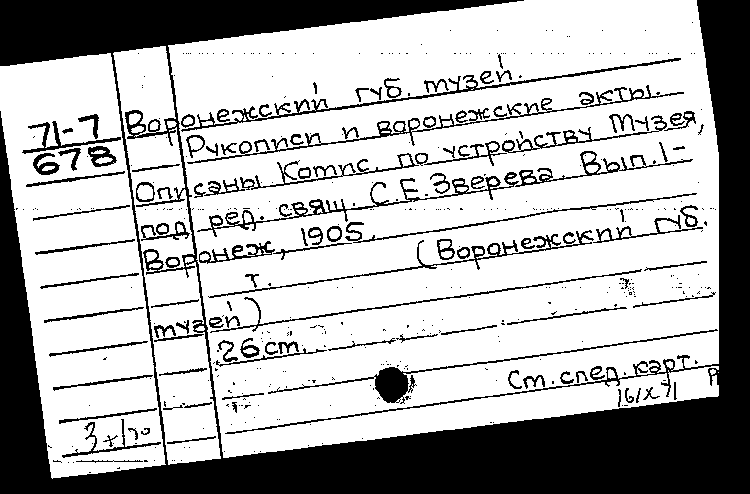 Воронежский губ. музей.
71-7
678
Рукописи и воронежские акты.
Описаны Комис. по устройству Музея,
под ред. свящ. С.Е.Зверева. Вып.1-
Воронеж, 1905.
т. (Воронежский губ.
музей)
26 см.
См. след. карт.
16/X 71